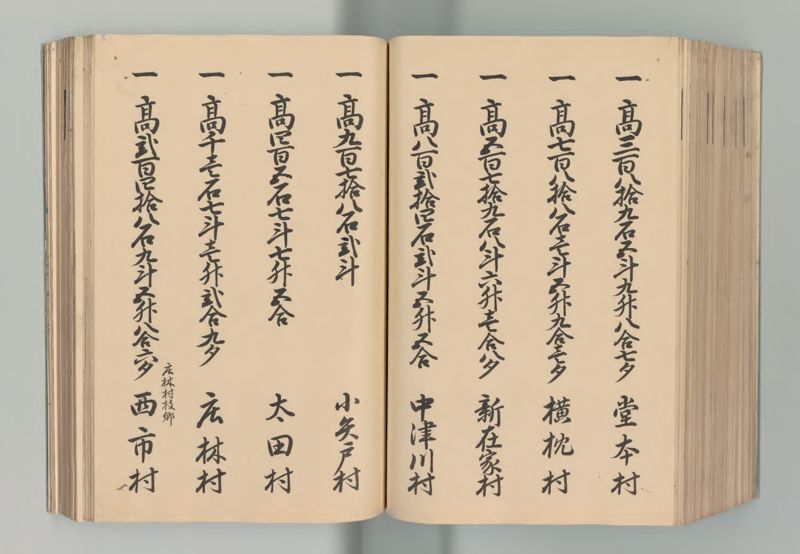 一 高三百八拾九石五斗九升八合七夕 堂本村
一 高七百八拾八石壱斗五升九合壱夕 横枕村
一 高五百七拾九石八斗六升壱合八夕 新在家村
一 高八百弐拾四石弐斗五升五合 中津川村
一 高九百七拾八石弐斗 小矢戸村
一 高四百五石七斗七升五合 太田村
一 高千壱石七斗壱升弐合九夕 庄林村
庄林村枝郷
一 高弐百四拾八石九斗五升八合六夕 西市村